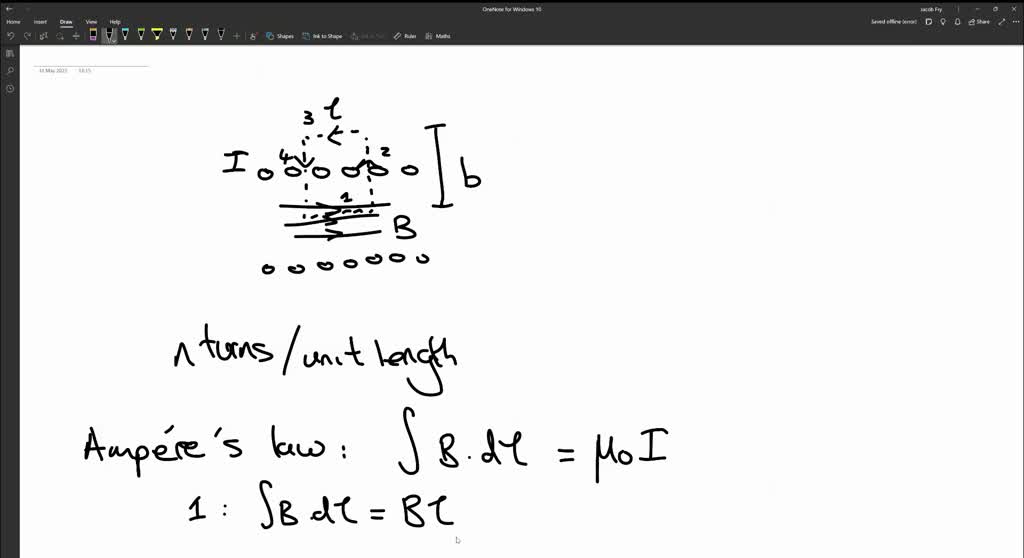 OneNote for Windows 10
Jacob Fry
Home Insert Draw View Help
Saved offline (error) Share
Shapes Ink to Shape Ruler Maths
11 May 2023 18:15
3 ℓ
I 4 2
b
1
B
n turns/unit length
Ampére's law: ∫ B · dℓ = μ₀ I
1 : ∫B dℓ = Bℓ